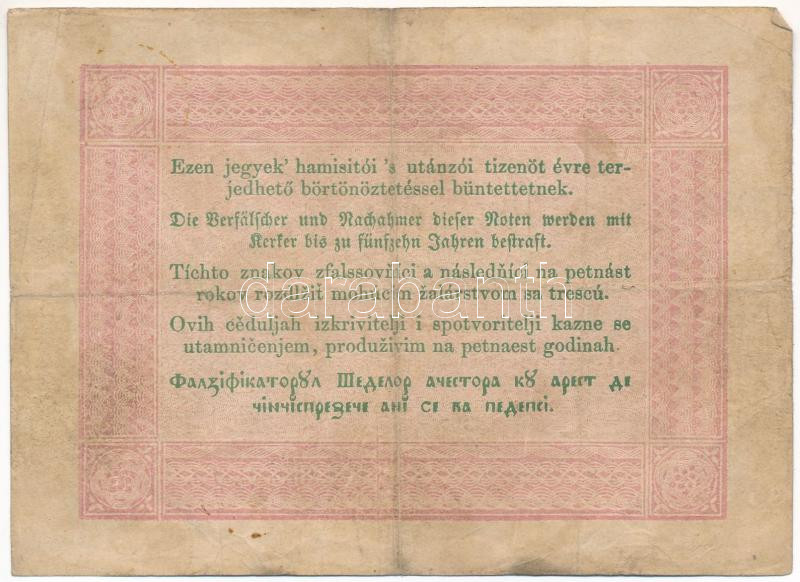 Ezen jegyek' hamisitói 's utánzói tizenöt évre ter-
jedhető börtönöztetéssel büntettetnek.
Die Verfälscher und Nachahmer dieser Noten werden mit
Kerker bis zu fünfzehn Jahren bestraft.
Tíchto znakov zfalssovňíci a následňíci na petnást
rokov rozdlžit mohúcím žalárstvom sa trescú.
Ovih cěduljah izkrivitelji i spotvoritelji kazne se
utamničenjem, produživim na petnaest godinah.
Фалꙃіфікаторꙋл Шеделор ачестора кꙋ арест де
чінчіспреꙃече ані се ва педепсі.
darabanth